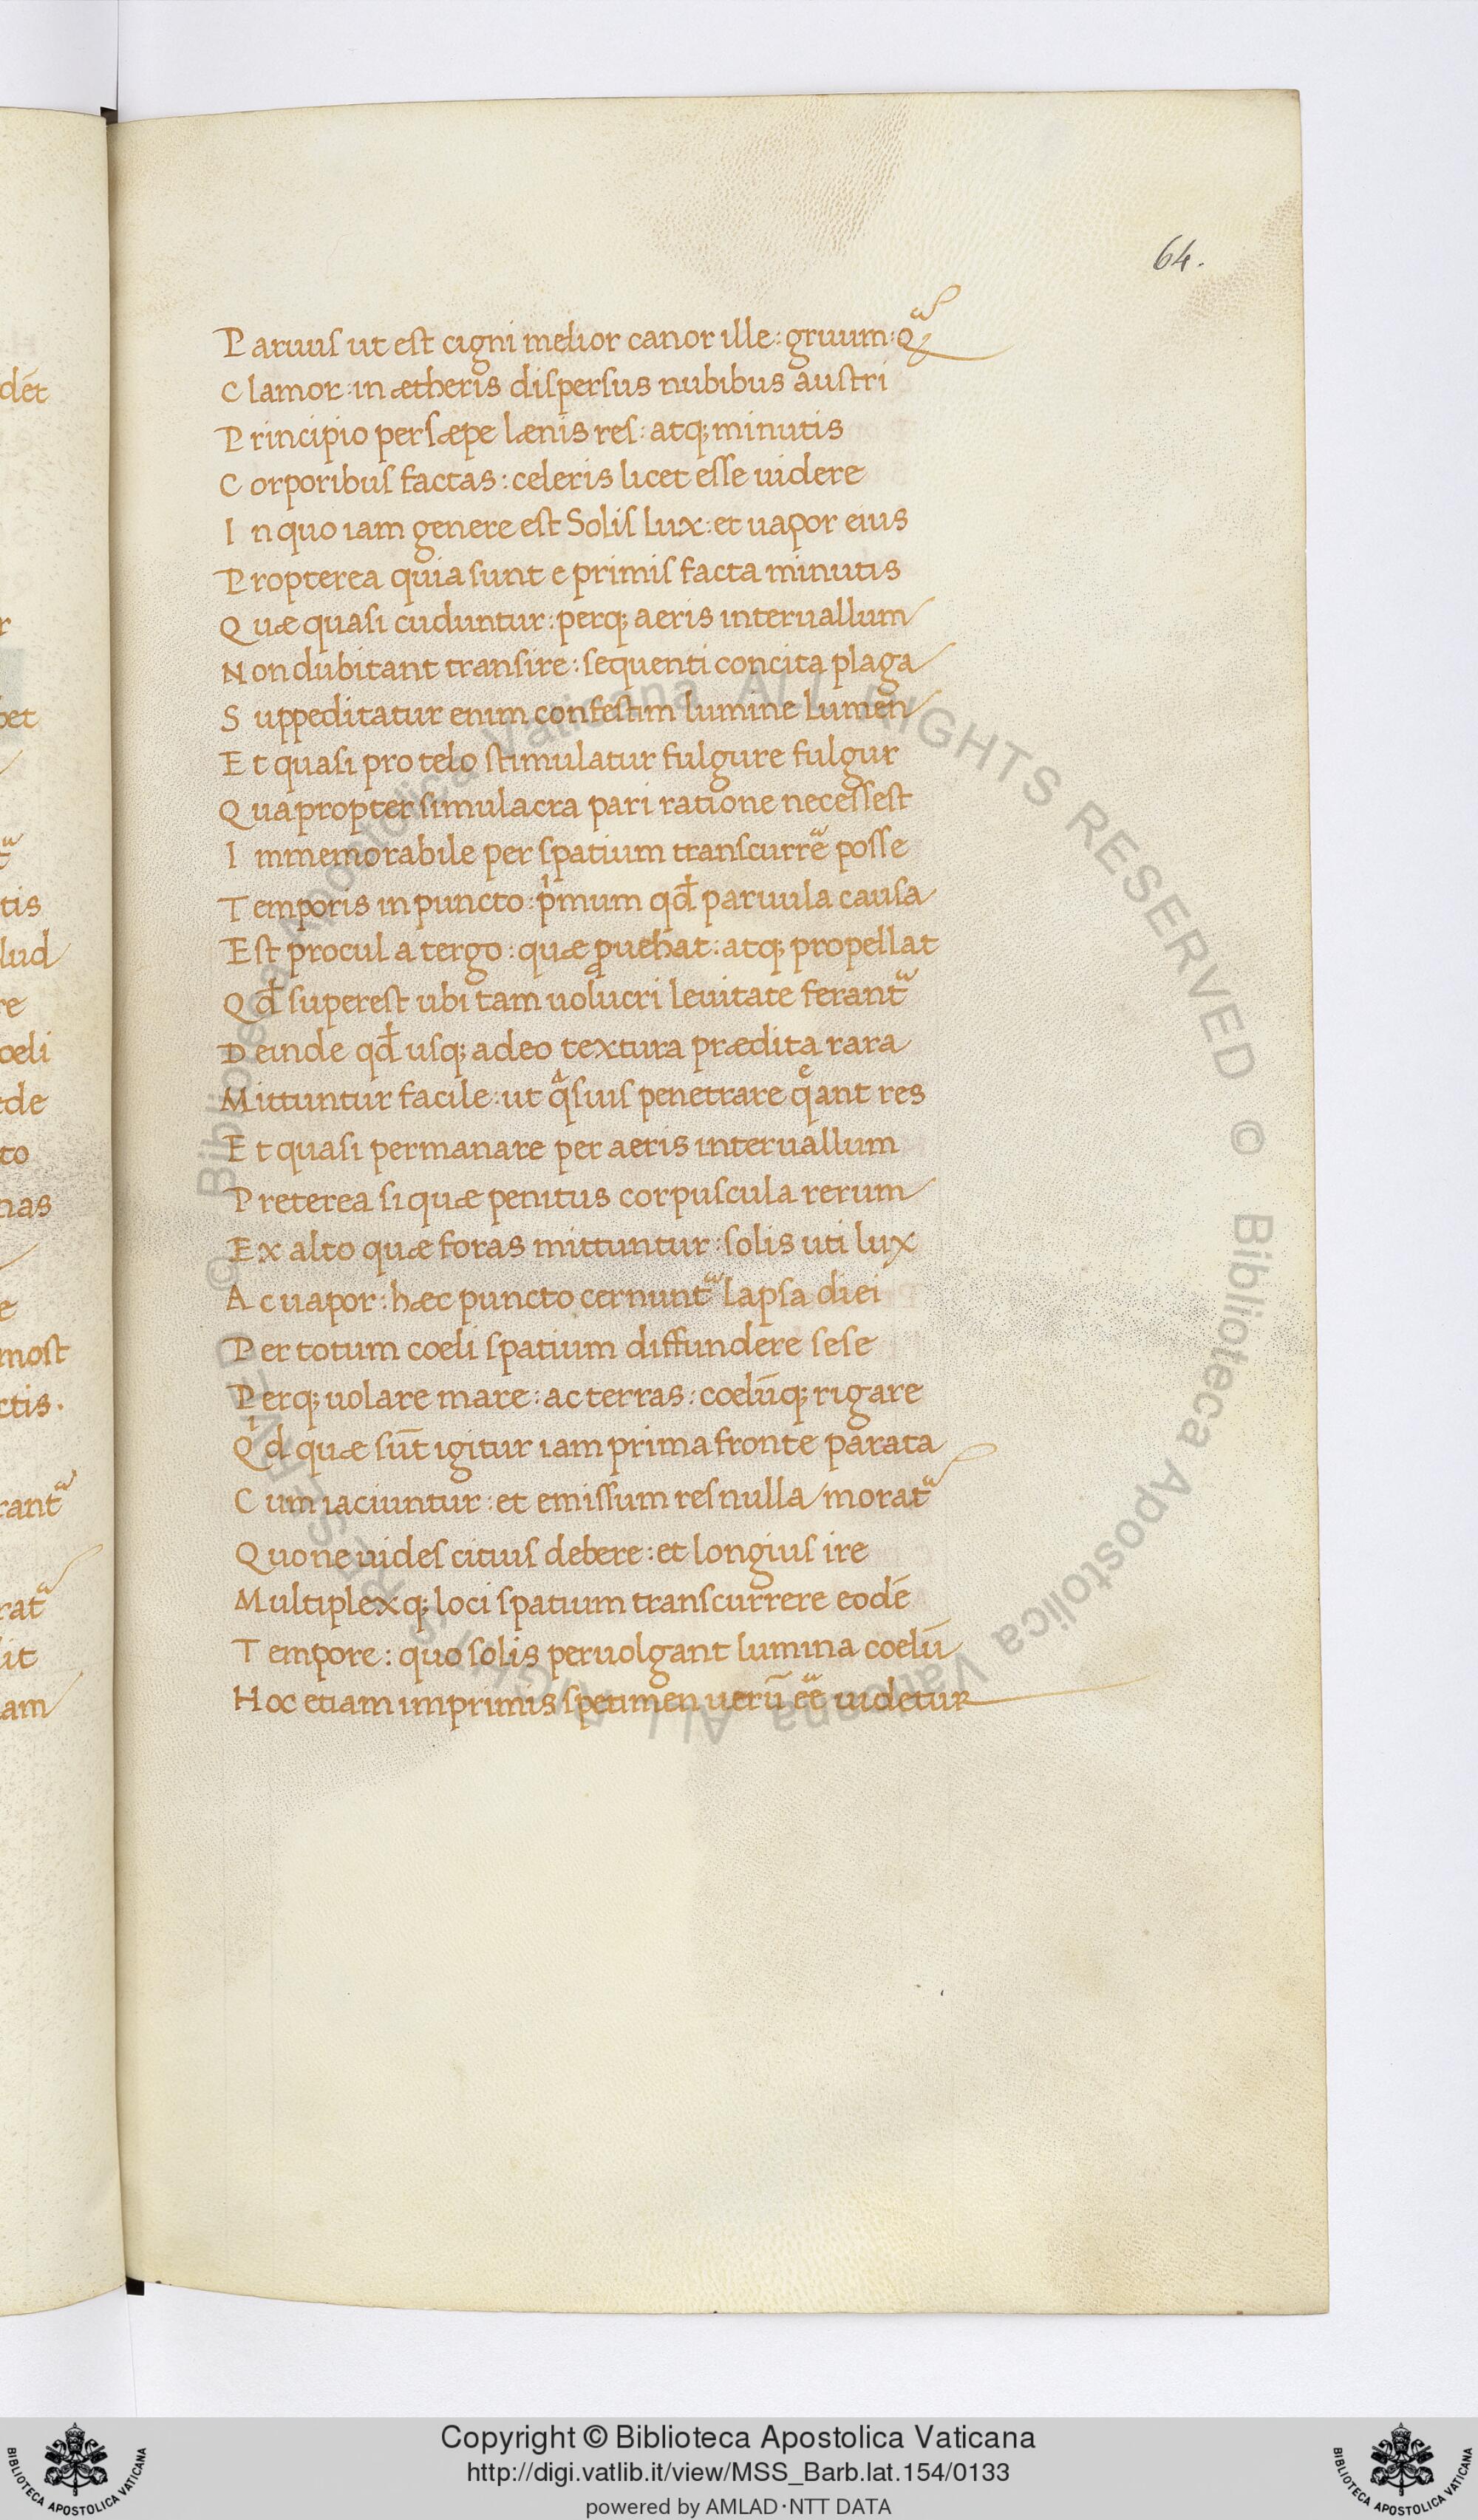 64.
Paruuſ ut eſt cigni melior canor ille: gruum: Qᷓ
Clamor: in ætheris diſperſus nubibus auſtri
Principio perſæpe lænis reſ: atq; minutis
Corporibuſ factas: celeris licet eſſe uidere
In quo iam genere eſt Soliſ lux: et uapor eius
Propterea quia ſunt e primiſ facta minutis
Quæ quaſi cuduntur: perq; aeris interuallum
Non dubitant tranſire: ſequenti concita plaga
Suppeditatur enim confeſtim lumine lumen
Et quaſi protelo ſtimulatur fulgure fulgur
Quapropter ſimulacra pari ratione neceſſeſt
Immemorabile per ſpatium tranſcurrēͣ poſſe
Temporis in puncto: pͥmum qđ paruula cauſa
Eſt procul a tergo: quæ ꝓuehat: atq; propellat
Qđ ſupereſt ubi tam uolucri leuitate ferantᷓ
Deinde qđ uſq; adeo textura prædita rara
Mittuntur facile: ut qͣſuiſ penetrare qͤant res
Et quaſi permanare per aeris interuallum
Preterea ſi quæ penitus corpuſcula rerum
Ex alto quæ foras mittuntur: ſolis uti lux
Ac uapor: hæc puncto cernuntᷓ lapſa diei
Per totum coeli ſpatium diffundere ſeſe
Perq; uolare mare: ac terras: coelūq; rigare
Qͥd quæ ſūt igitur iam prima fronte parata
Cum iaciuntur: et emiſſum reſ nulla moratᷓ
Quone uideſ citiuſ debere: et longiuſ ire
Multiplexq; loci ſpatium tranſcurrere eodē
Tempore: quo ſolis peruolgant lumina coelū
Hoc etiam imprimis ſpetimen uerū eēͣ uidetur
Copyright © Biblioteca Apostolica Vaticana
http://digi.vatlib.it/view/MSS_Barb.lat.154/0133
powered by AMLAD·NTT DATA